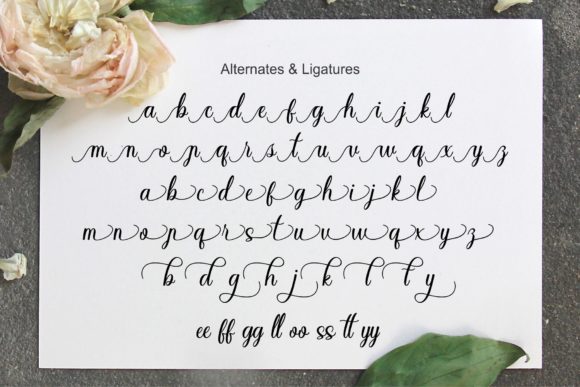 Alternates & Ligatures
a b c d e f g h i j k l
m n o p q r s t u v w q x y z
a b c d e f g h i j k l
m n o p q r s t u v w q x y z
b d g h j k l t y
ee ff gg ll oo ss tt yy